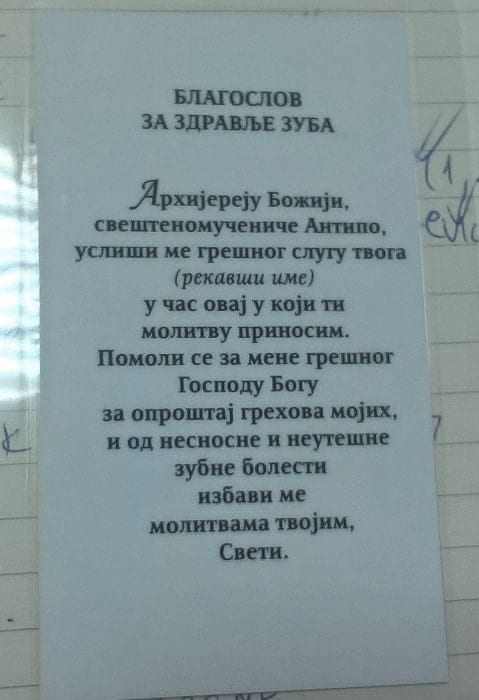 БЛАГОСЛОВ
ЗА ЗДРАВЉЕ ЗУБА
Архијереју Божији,
свештеномучениче Антипо,
услиши ме грешног слугу твога
(рекавши име)
у час овај у који ти
молитву приносим.
Помоли се за мене грешног
Господу Богу
за опроштај грехова мојих,
и од несносне и неутешне
зубне болести
избави ме
молитвама твојим,
Свети.